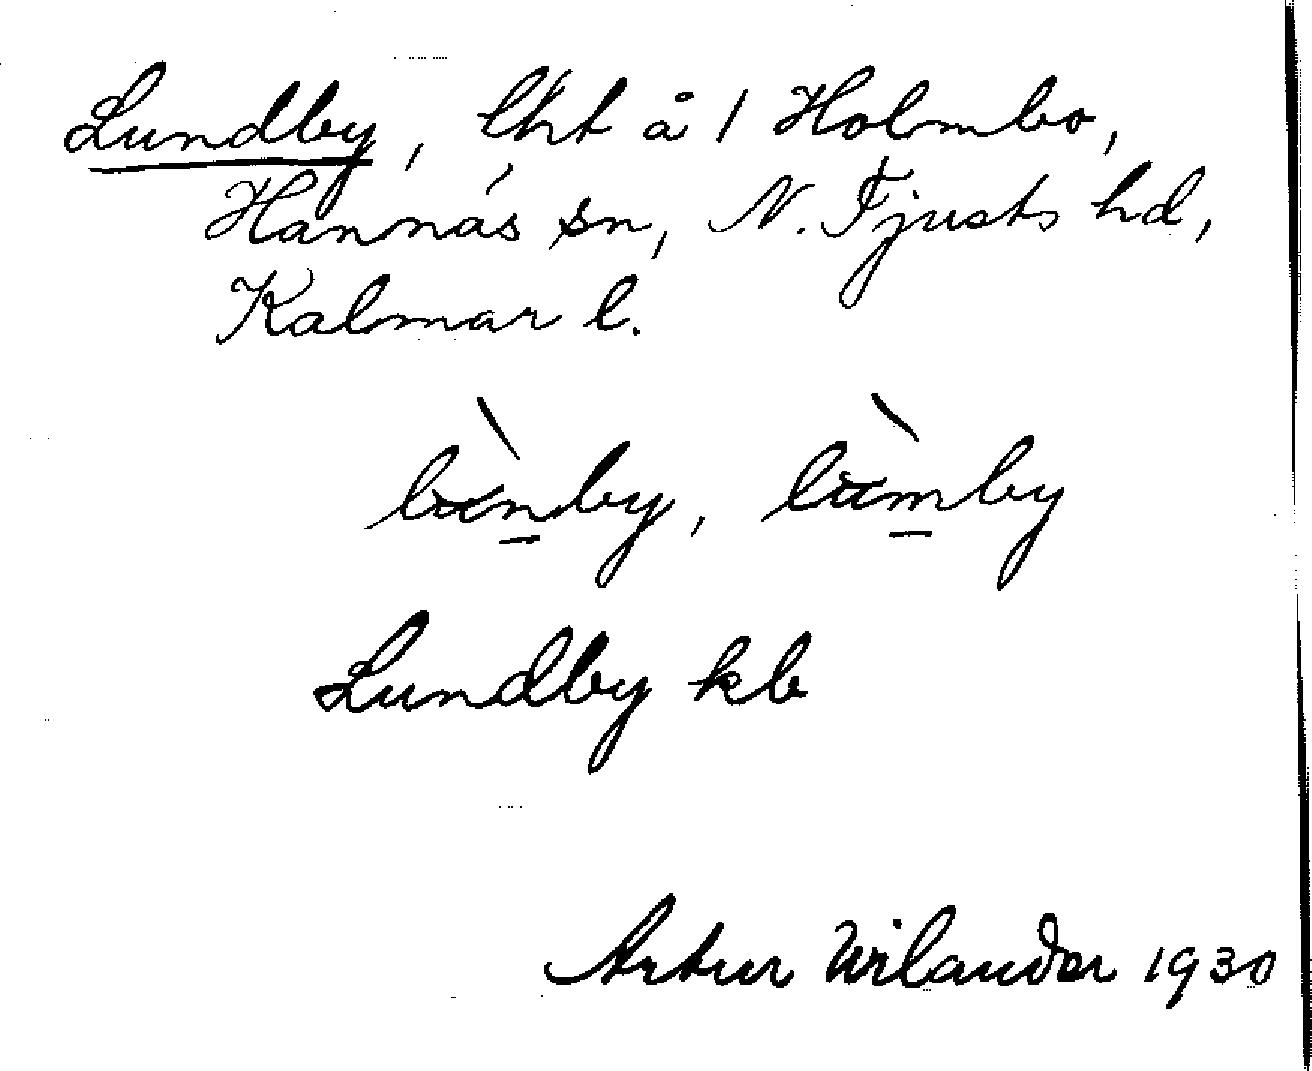 Lundby, lht å 1 Holmbo,
Hannäs sn, N. Tjusts hd,
Kalmar l.
lùnby, lùmby
Lundby kb
Artur Wilander 1930